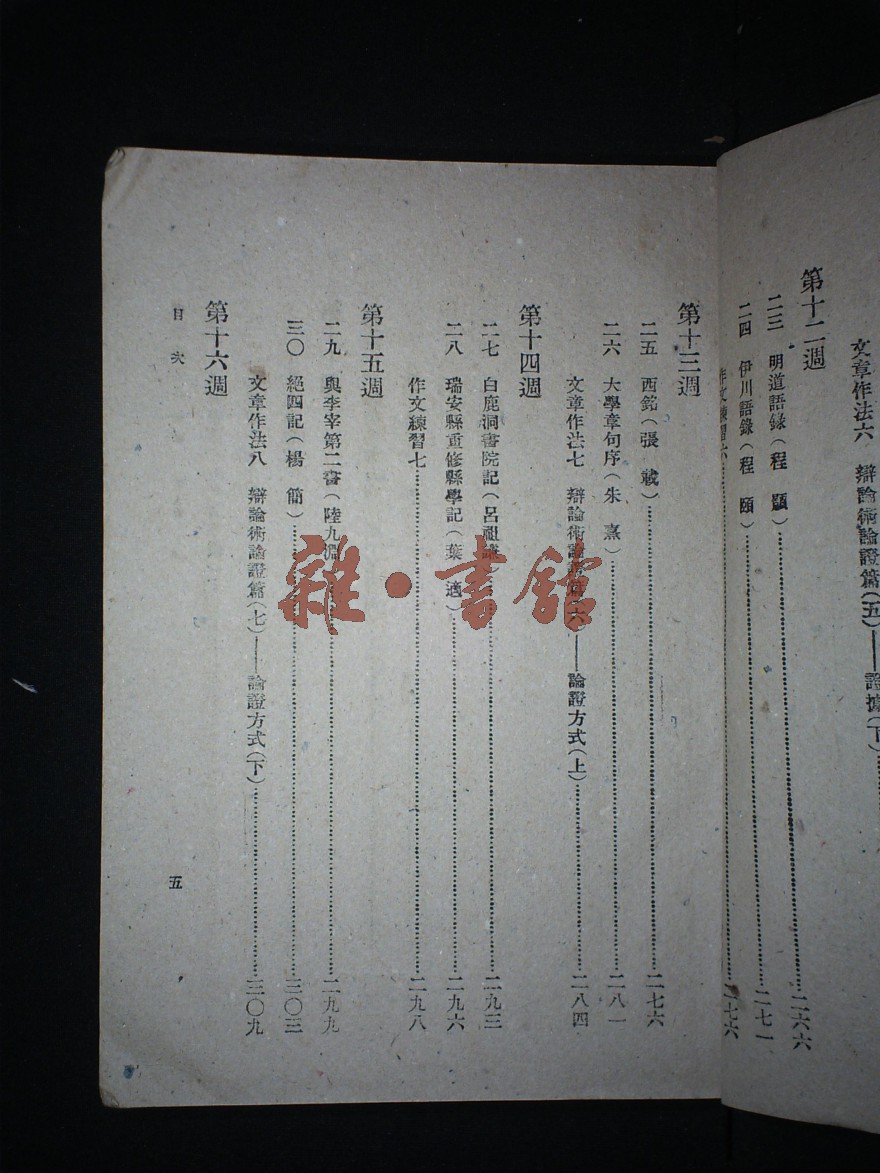 文章作法六　辯論術論證篇(五)——證據(下)
第十二週
二三　明道語錄(程　顥)……二六六
二四　伊川語錄(程　頤)……二七一
作文練習六……二七六
第十三週
二五　西銘(張　載)……二七六
二六　大學章句序(朱　熹)……二八一
文章作法七　辯論術論證篇(六)——論證方式(上)……二八四
第十四週
二七　白鹿洞書院記(呂祖謙)……二九三
二八　瑞安縣重修縣學記(葉　適)……二九六
作文練習七……二九八
第十五週
二九　與李宰第二書(陸九淵)……二九九
三〇　絕四記(楊　簡)……三〇三
文章作法八　辯論術論證篇(七)——論證方式(下)……三〇九
第十六週
目次
五
雜·書館